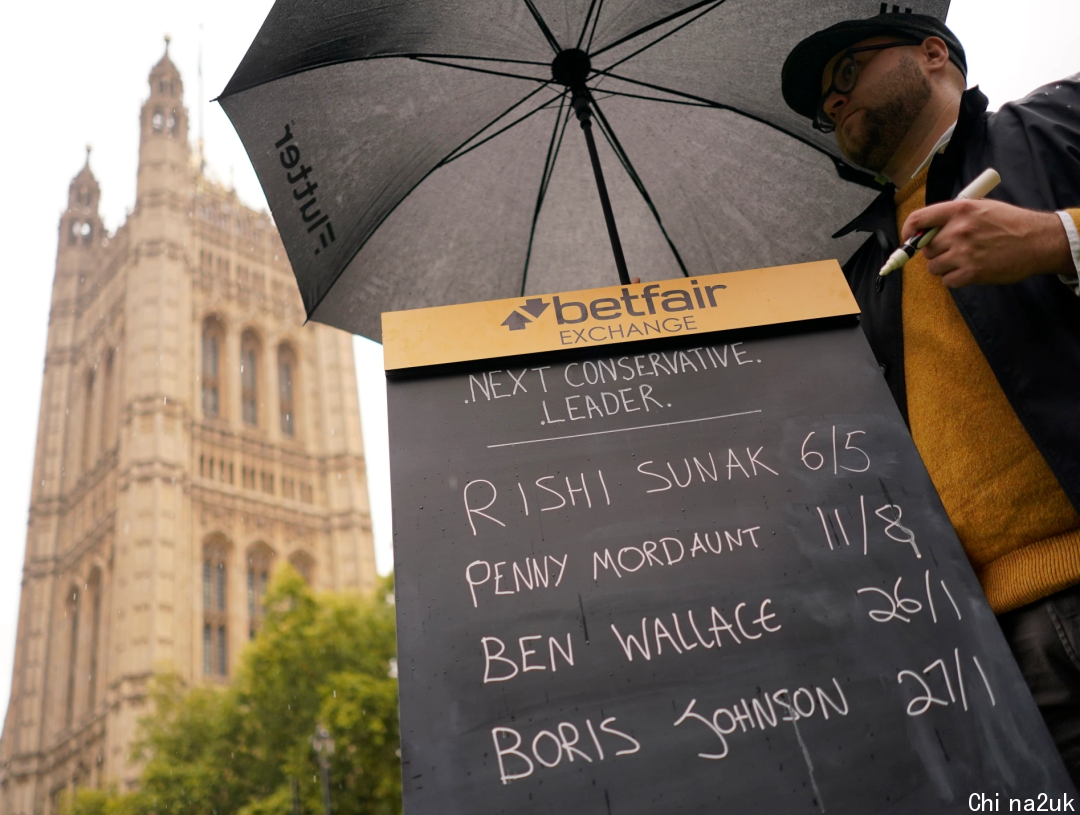 Flutter
betfair
EXCHANGE
.NEXT CONSERVATIVE.
.LEADER.
RISHI SUNAK 6/5
PENNY MORDAUNT 11/8
BEN WALLACE 26/1
BORIS JOHNSON 27/1
Chi na2uk